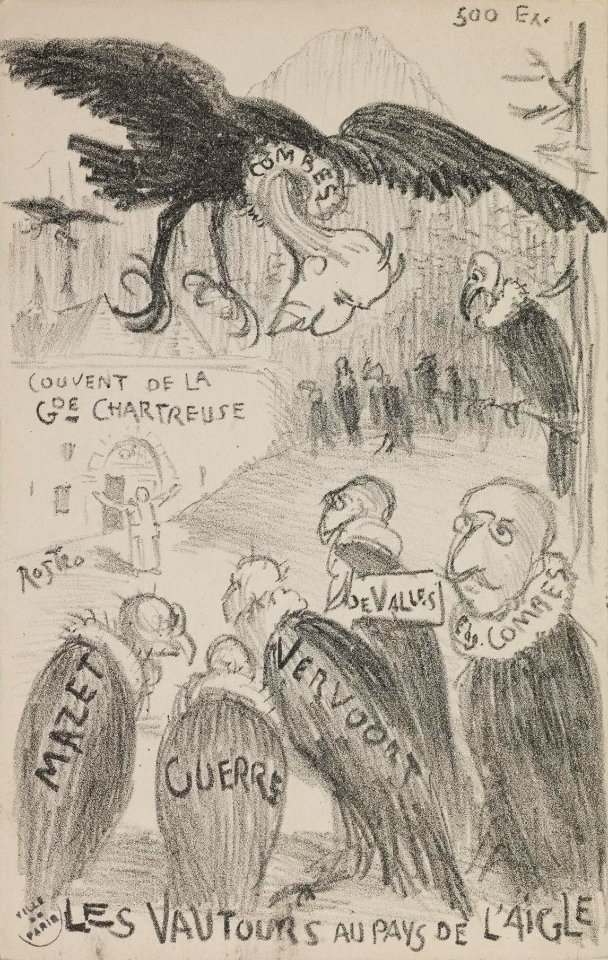 500 Ex.
COMBES
COUVENT DE LA
GDE CHARTREUSE
Rostro
DE VALLES
Edg. COMBES
MAZET
GUERRE
VERVOORT
VILLE
DE
PARIS
LES VAUTOURS AU PAYS DE L'AIGLE